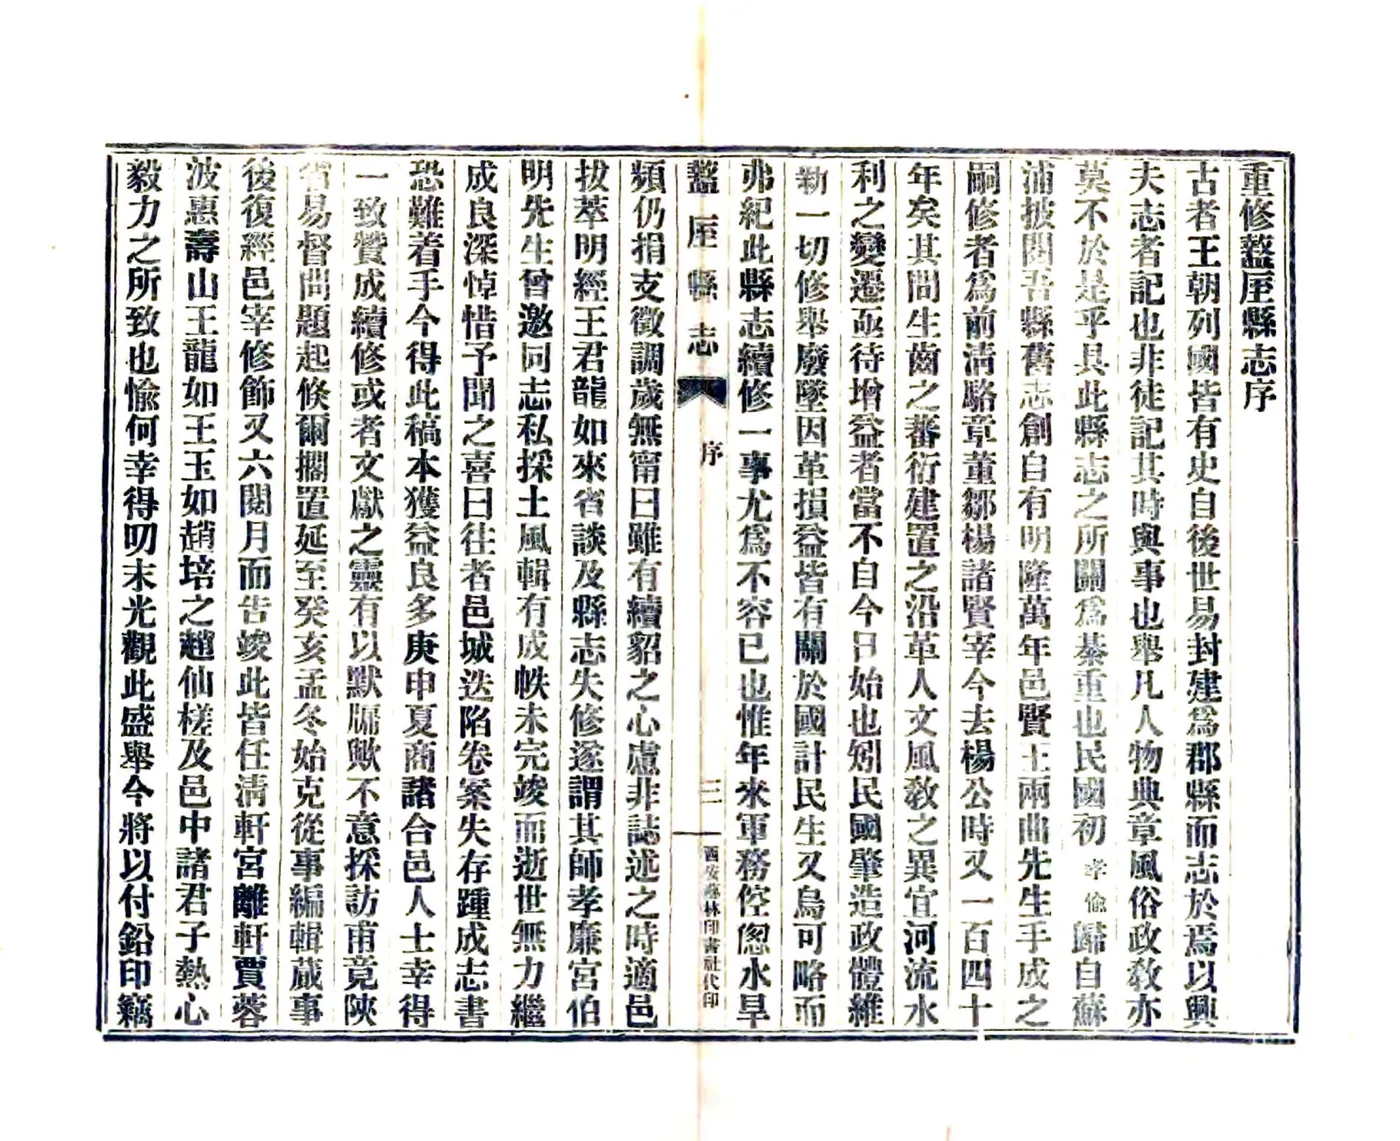 重修盩厔縣志序
古者王朝列國皆有史自後世易封建爲郡縣而志於焉以興
夫志者記也非徒記其時與事也舉凡人物典章風俗政教亦
莫不於是乎具此縣志之所關爲綦重也民國初孝愉歸自蘇
浦披閱吾縣舊志創自有明隆萬年邑賢王兩曲先生手成之
嗣修者爲前清駱章董鄒楊諸賢宰今去楊公時又一百四十
年矣其間生齒之蕃衍建置之沿革人文風教之異宜河流水
利之變遷亟待增益者當不自今日始也矧民國肇造政體維
新一切修舉廢墜因革損益皆有關於國計民生又烏可略而
弗紀此縣志續修一事尤爲不容已也惟年來軍務倥偬水旱
盩厔縣志
序
三
西安藝林印書社代印
頻仍捐支徵調歲無甯日雖有續貂之心慮非誌述之時適邑
拔萃明經王君龍如來省談及縣志失修遂謂其師孝廉宮伯
明先生曾邀同志私採土風輯有成帙未完竣而逝世無力繼
成良深悼惜予聞之喜曰往者邑城迭陷卷案失存踵成志書
恐難着手今得此稿本獲益良多庚申夏商諸合邑人士幸得
一致贊成續修或者文獻之靈有以默牖歟不意採訪甫竟陝
省易督問題起倐爾擱置延至癸亥孟冬始克從事編輯蕆事
後復經邑宰修飾又六閱月而告竣此皆任清軒宮離軒賈蓉
波惠壽山王龍如王玉如趙培之趙仙槎及邑中諸君子熱心
毅力之所致也愉何幸得叨末光觀此盛舉今將以付鉛印竊